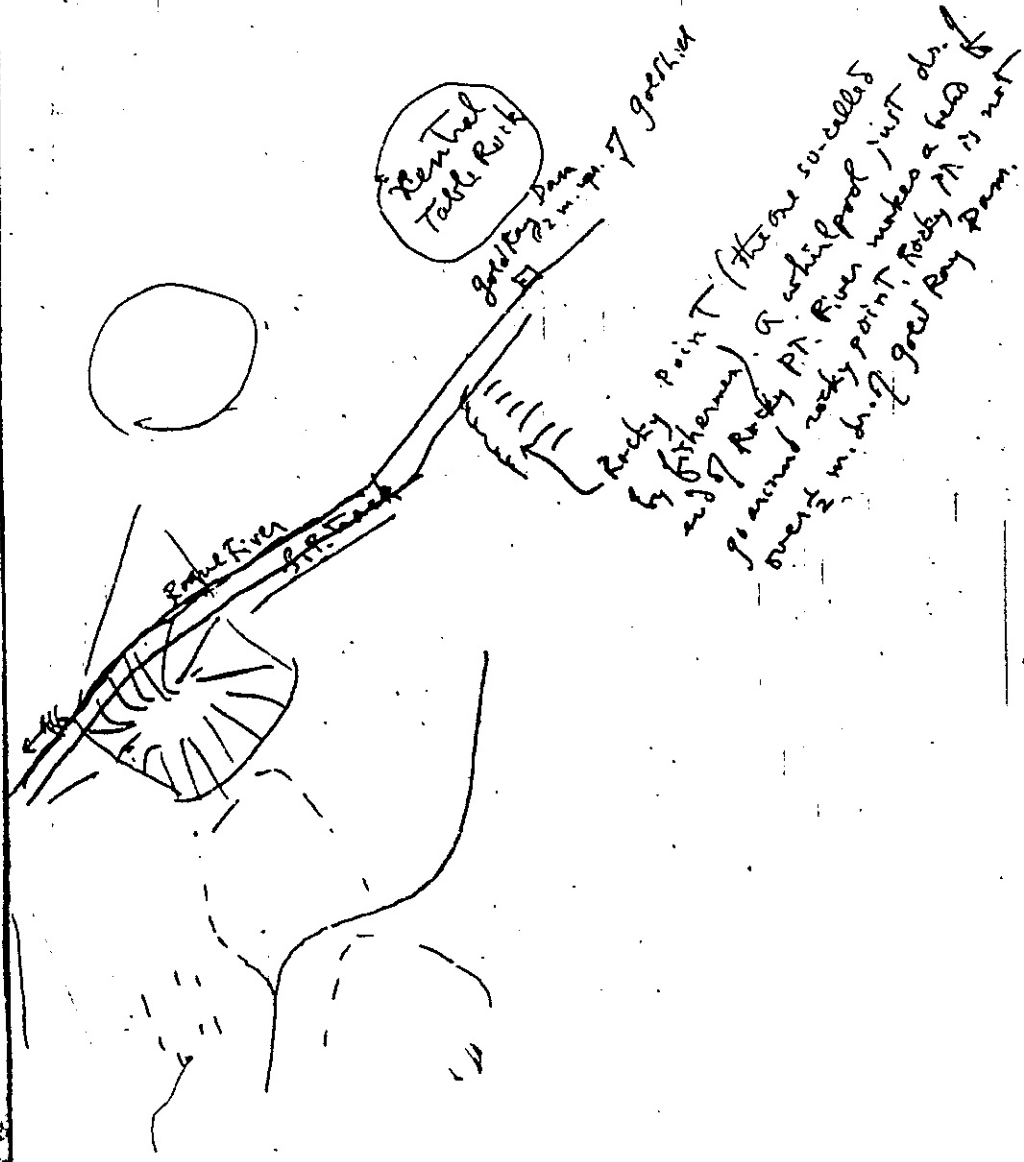 Central
Table Rock
Gold Ray Dam
2 m. ups. of Gold Hill
Rocky Point (the one so-called
by fishermen. A whirlpool just ds. of
end of Rocky Pt. River makes a bend to
go around rocky point. Rocky Pt. is not
over ½ m. ds. of Gold Ray Dam.
Rogue River
S.P. Track